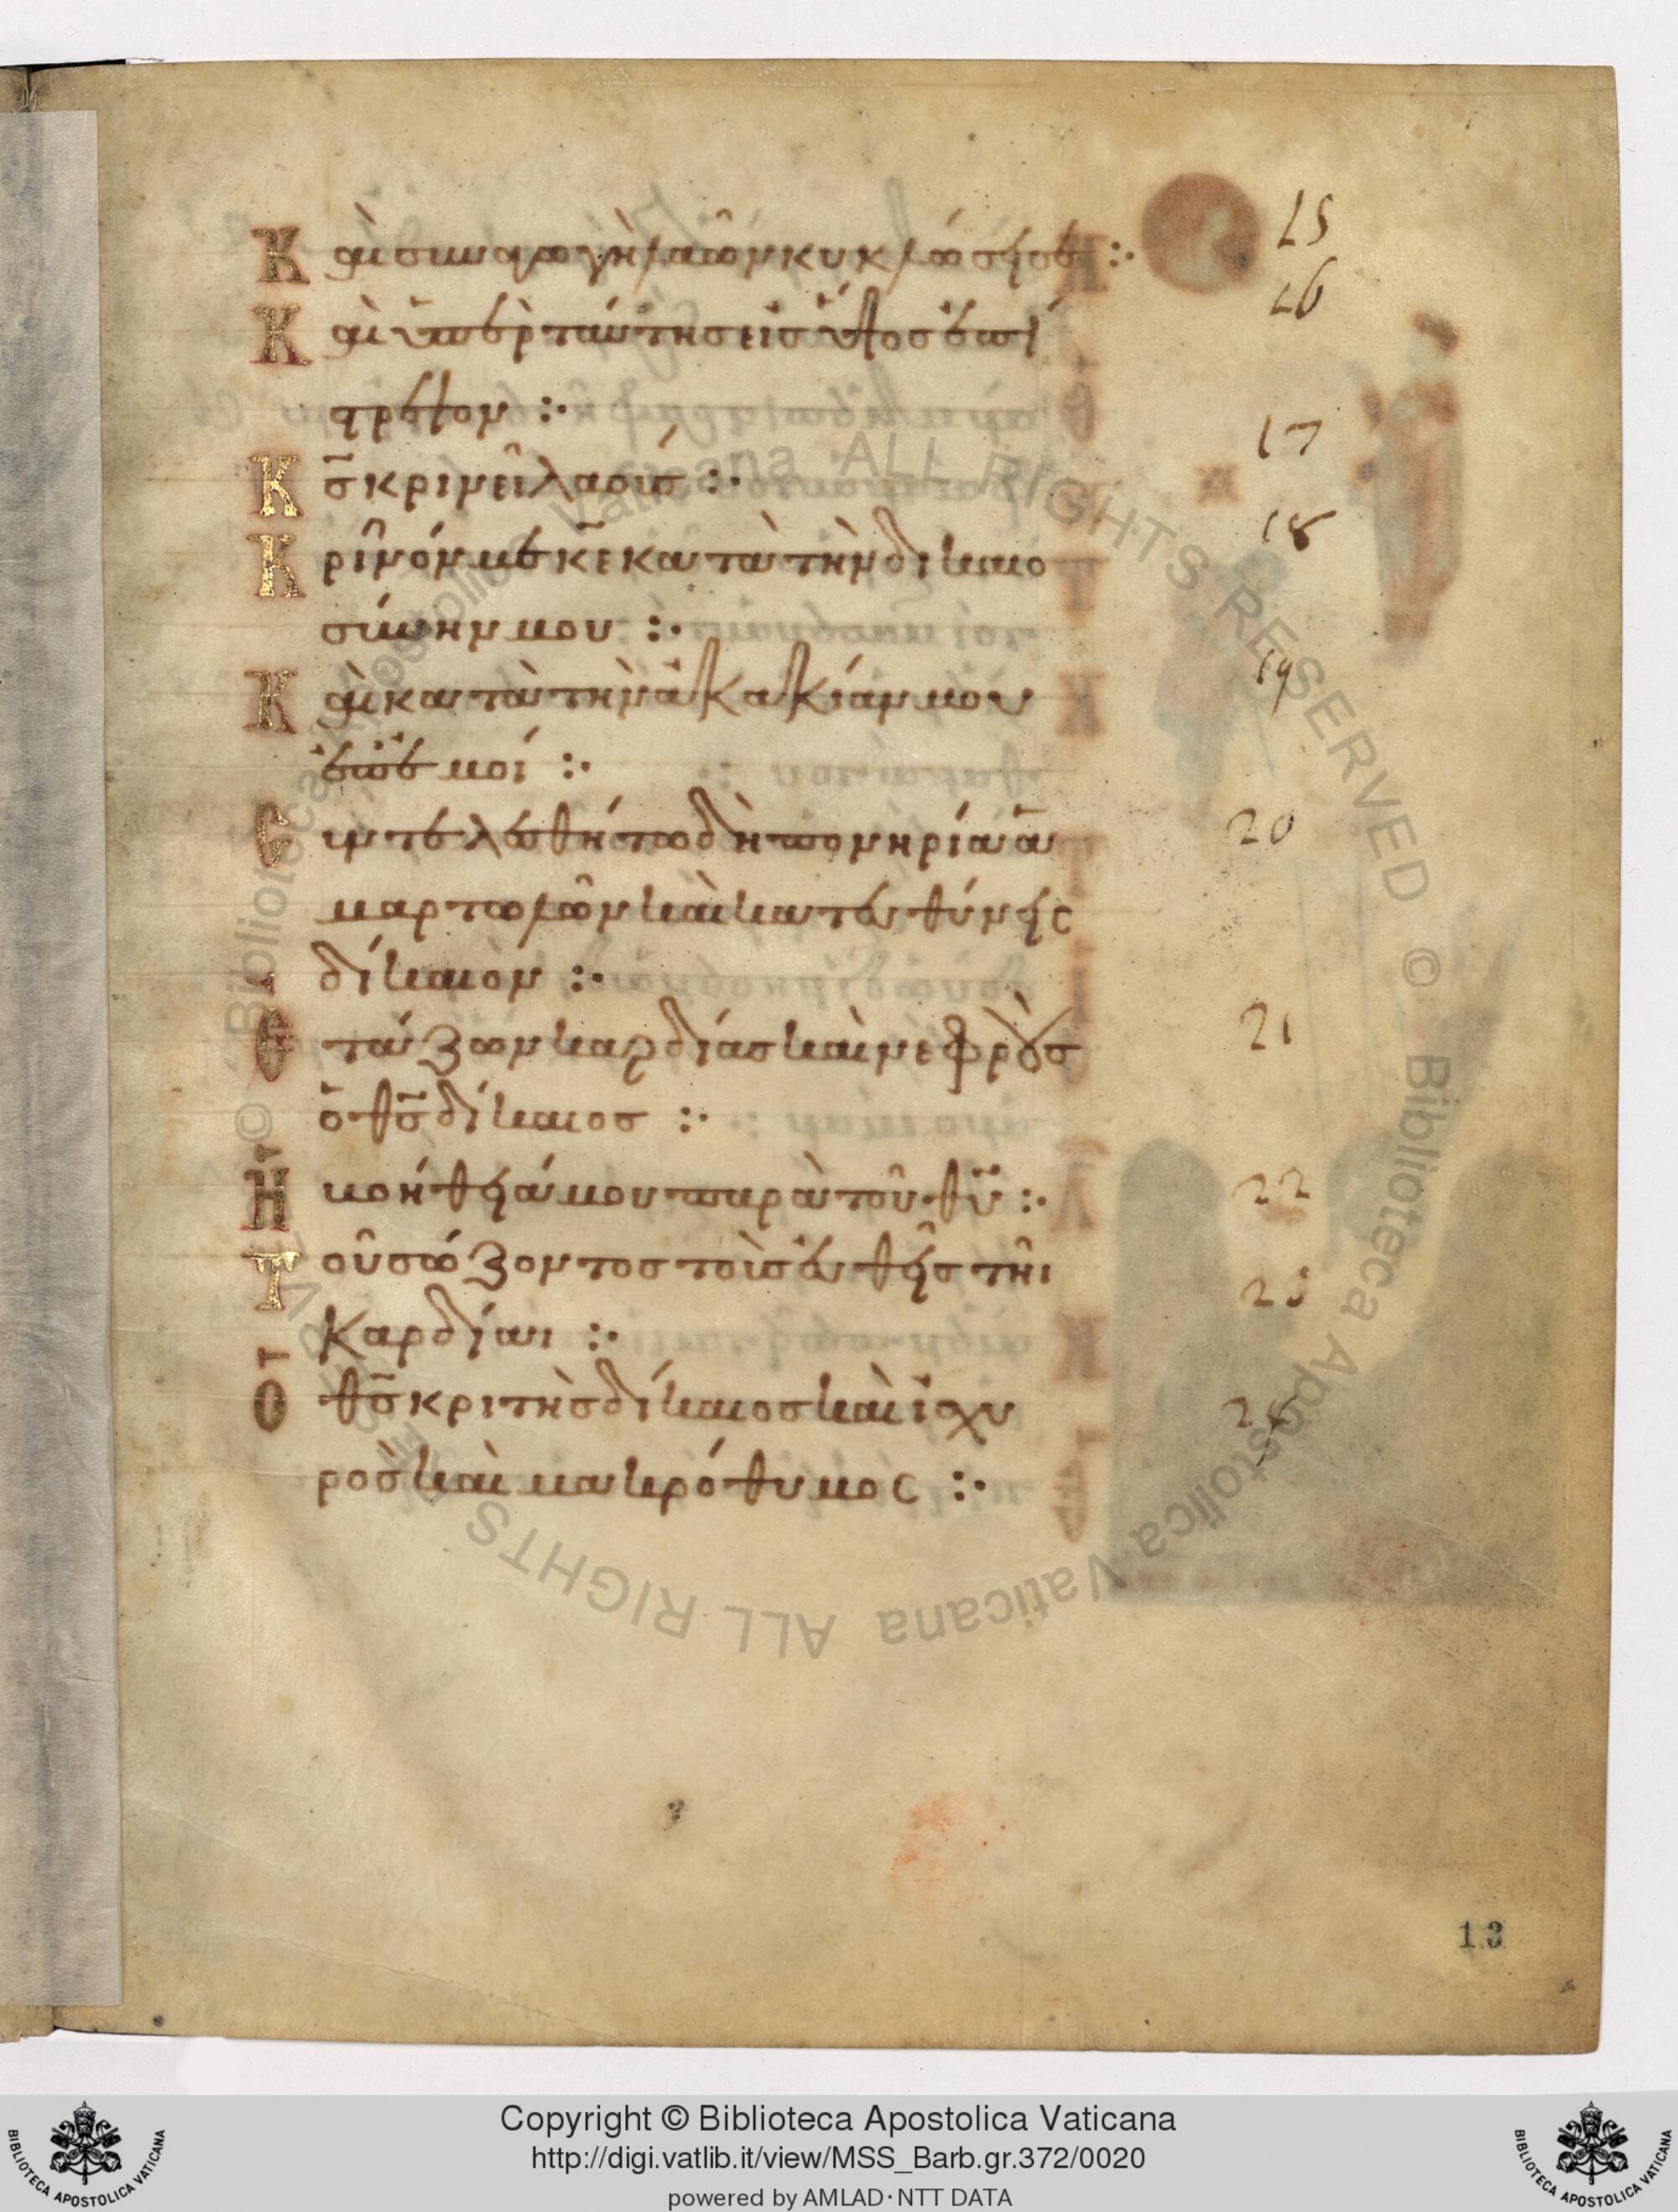 Καὶ συναγωγὴ λαῶν κυκλώσει σε :· 15
Καὶ ὑπὲρ ταύτης εἰς ὕψος ἐπί 16
στρεψον :·
Κ̅ς̅ κρινεῖ λαούς :· 17
Κρῖνόν με κ̅ε̅ κατὰ τὴν δικαιο 18
σύνην μου :·
Καὶ κατὰ τὴν ἀκακίαν μου 19
ἐπ' ἐμοί :·
Συντελεσθήτω δὴ πονηρία ἁ 20
μαρτωλῶν καὶ κατευθυνεῖς
δίκαιον :·
Ἐτάζων καρδίας καὶ νεφροὺς 21
ὁ θ̅ς̅ δίκαιος :·
Ἡ βοήθειά μου παρὰ τοῦ θ̅υ̅ :· 22
Τοῦ σώζοντος τοὺς εὐθεῖς τῆι 23
καρδίαι :·
Ὁ θ̅ς̅ κριτὴς δίκαιος καὶ ἰσχυ 24
ρὸς καὶ μακρόθυμος :·
13
Copyright © Biblioteca Apostolica Vaticana
http://digi.vatlib.it/view/MSS_Barb.gr.372/0020
powered by AMLAD · NTT DATA
BIBLIOTECA APOSTOLICA VATICANA
BIBLIOTECA APOSTOLICA VATICANA
© Biblioteca Apostolica Vaticana ALL RIGHTS RESERVED © Biblioteca Apostolica Vaticana ALL RIGHTS RESERVED